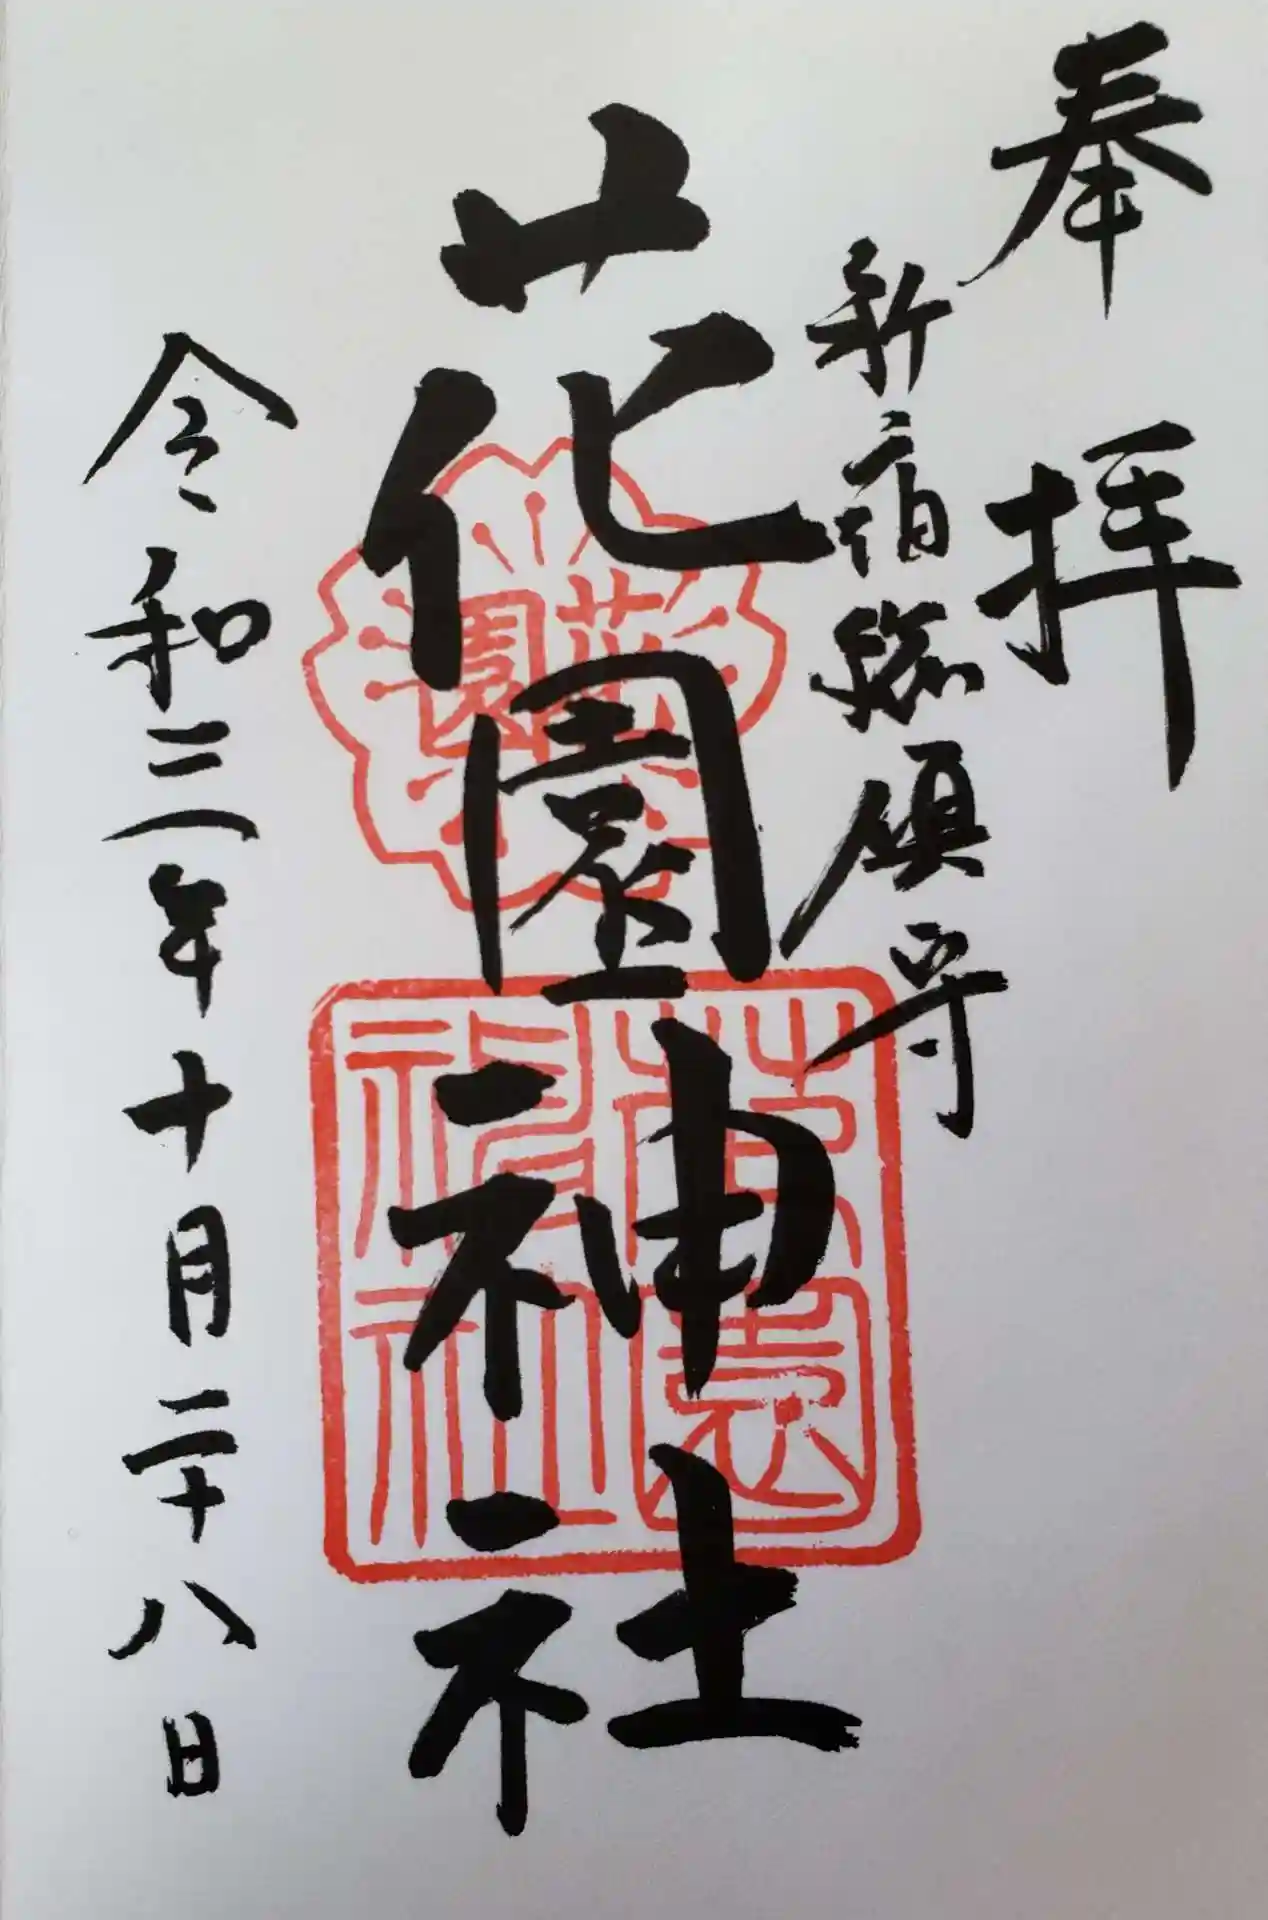 奉拝
新宿総鎮守
花園神社
令和三年十月二十八日
花園
花園神社